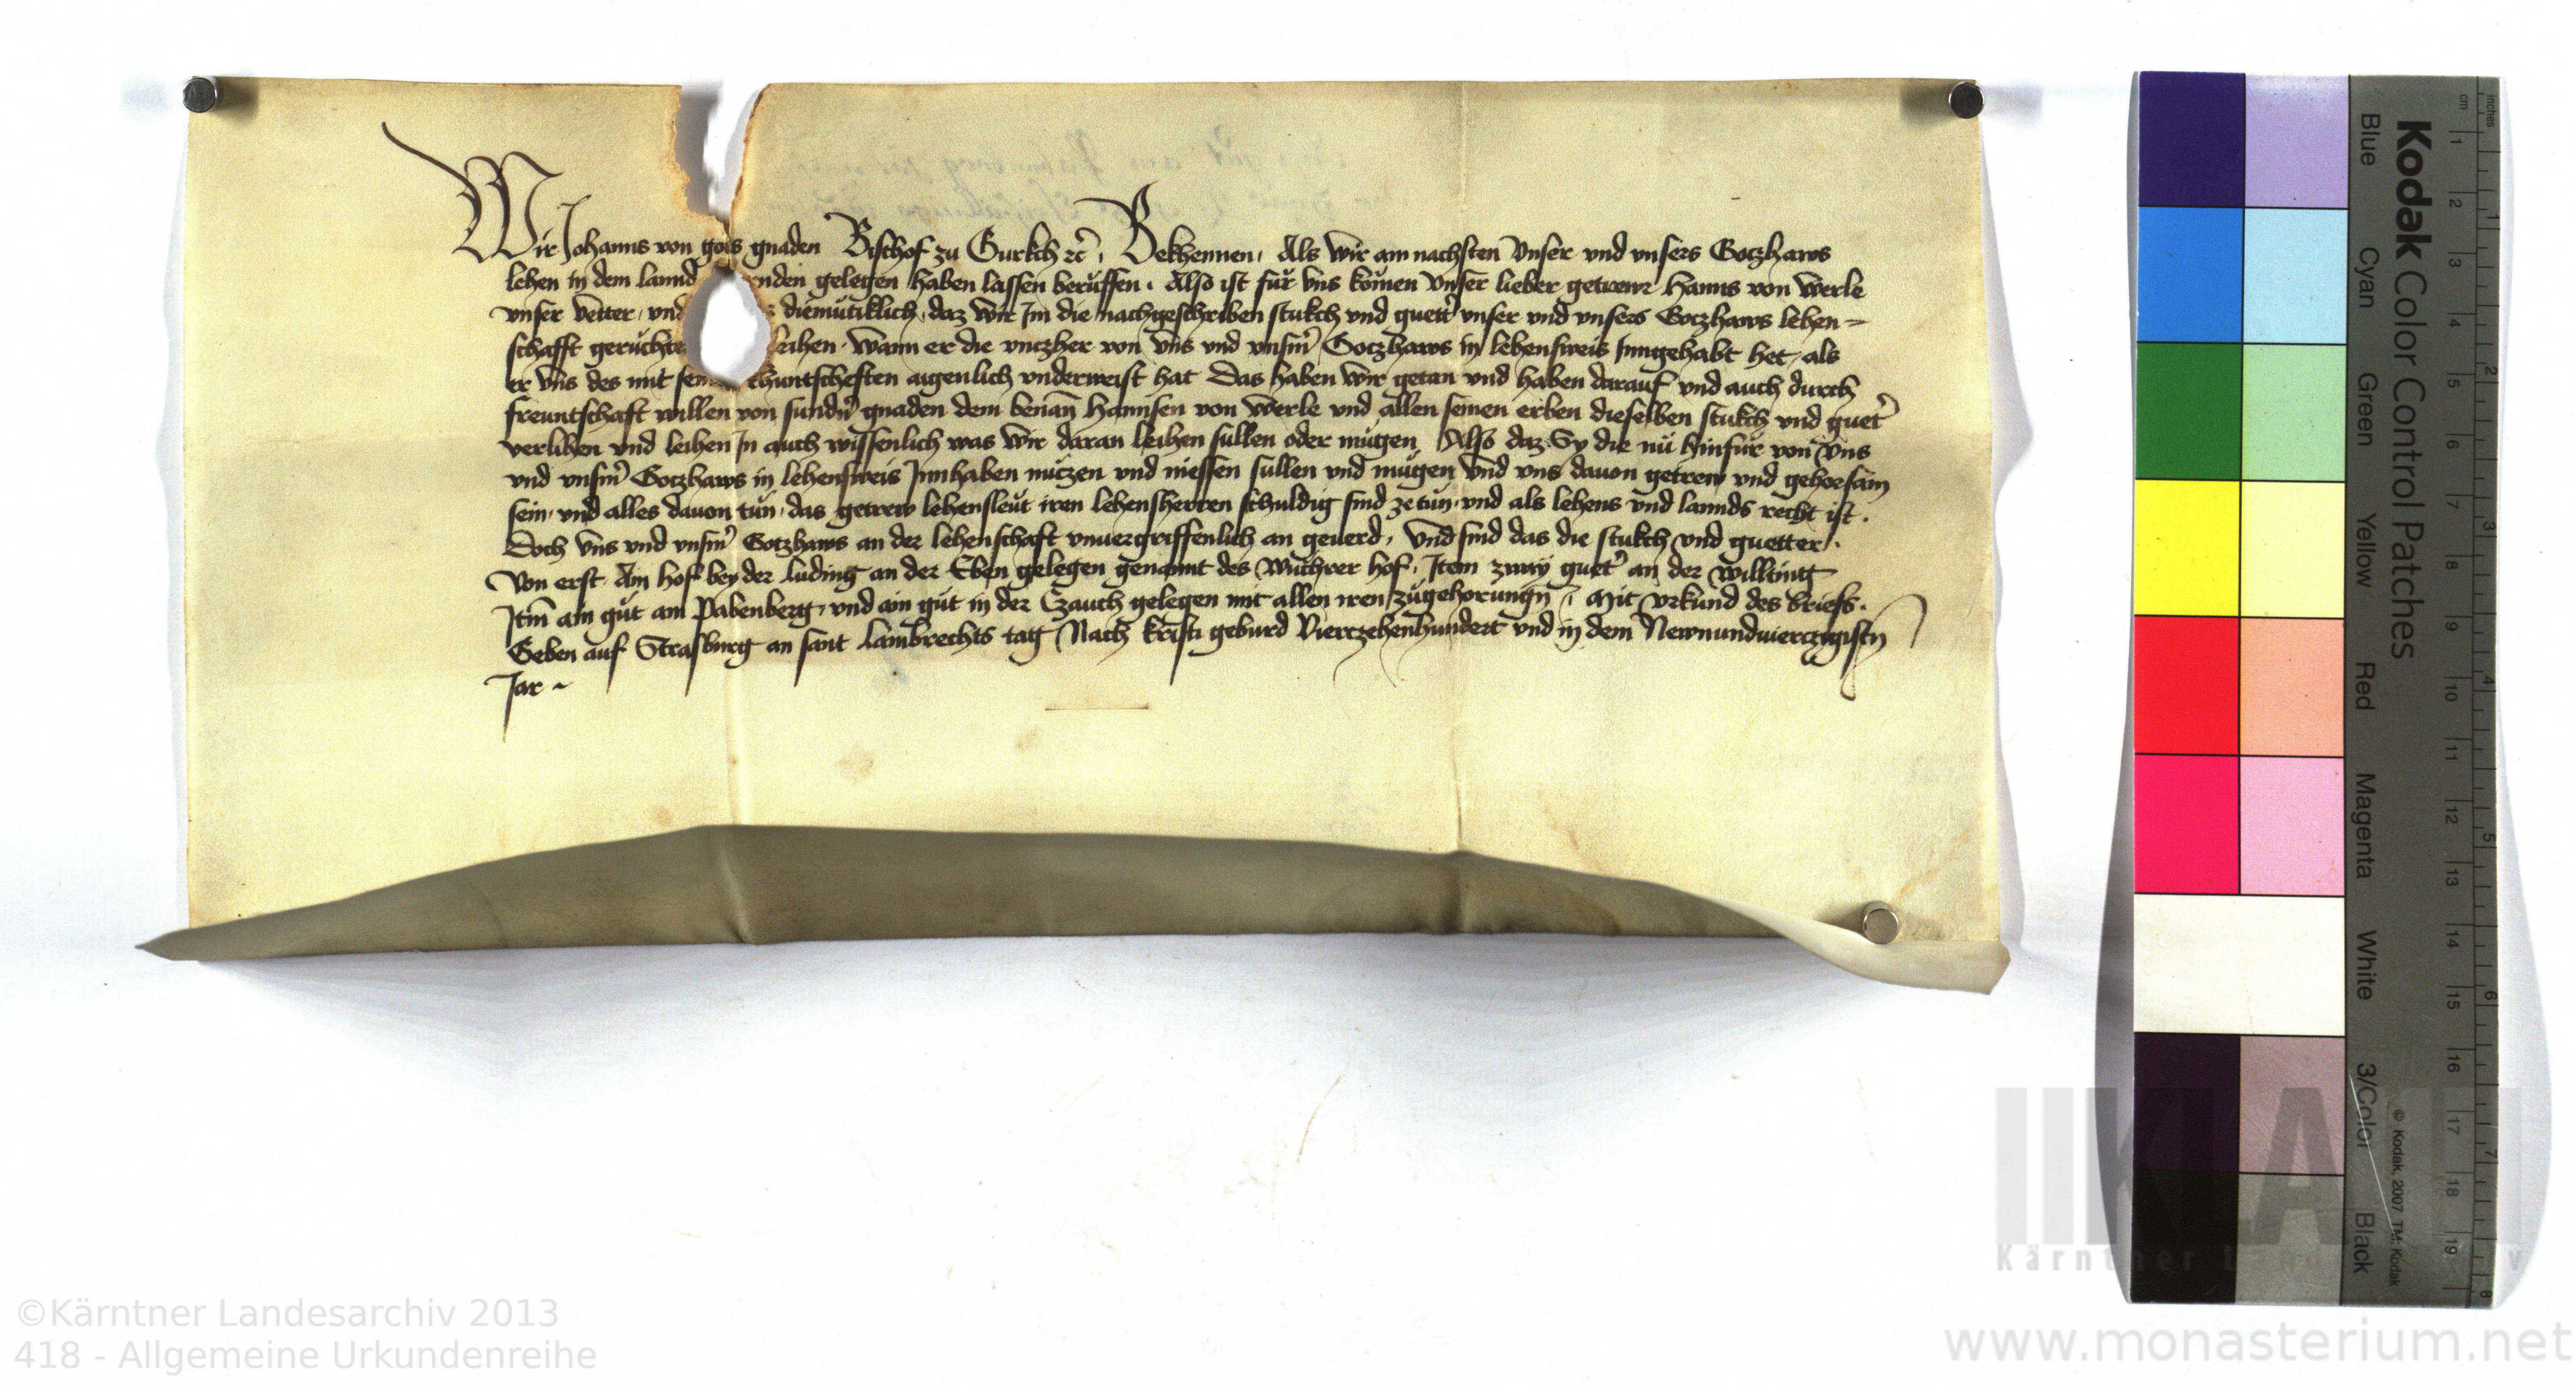 Wir Johanns von gots gnaden Bischof zu Gurkch etc̃. Bekhennen, Als wir am nachsten Unser und unsers Goczhaws
lehen in dem lannd nden gelegen haben lassen berůffen. Also ist fůr uns komen Unser lieber getrewr Hanns von Werle
unser Vetter, und diemůtiklich, daz wir Im die nachgeschriben stukch und guett̉ unser und unsers Goczhaws lehen=
schafft gerůchte leihen, Wann er die unczher von Uns und unsm̉ Goczhaws in lehensweis Inngehabt het, als
er Uns des mit sein khuntscheften aigenlich underweist hat Das haben wir getan und haben darauf und auch durch
freuntschaft willen von sundn̉ gnaden dem benañ Hannsen von Werle und allen seinen erben dieselben stukch und guet̉
verlihen und leihen In auch wissenlich was wir daran leihen sullen oder můgen Also daz Sy die nů hinfůr von Uns
und unsm̉ Goczhaws in lehensweis Innhaben nuczen und niessen sullen und můgen Und uns davon getrew und gehorsam
sein, und alles davon tůn, das getrew lehensleůt iren lehensherren schuldig sind ze tůn, und als lehens und lannds recht ist.
Doch Uns und unsm̉ Goczhaws an der lehenschaft unvergriffenlich an geverd, Und sind das die stukch und guetter.
Von erst Am hof bey der luding an der Eben gelegen genannt des Wuchrer hof, Item zway guet̉ an der Willting
Itm̃ ain gůt am Pabenberg, und ain gůt in der Gzauch gelegen mit allen iren zůgehorungñ, Mit urkund des briefs.
Geben auf Strasburg an sant Lambrechts tag Nach Kristi geburd Vierczehenhundert und in dem Newnundvierczigistn̄
Jar ~
Kodak Color Control Patches
Blue Cyan Green Yellow Red Magenta White 3/Color Black
© Kodak, 2007 TM: Kodak
inches 1 2 3 4 5 6 7 8
cm 1 2 3 4 5 6 7 8 9 10 11 12 13 14 15 16 17 18 19
©Kärntner Landesarchiv 2013
418 - Allgemeine Urkundenreihe
www.monasterium.net